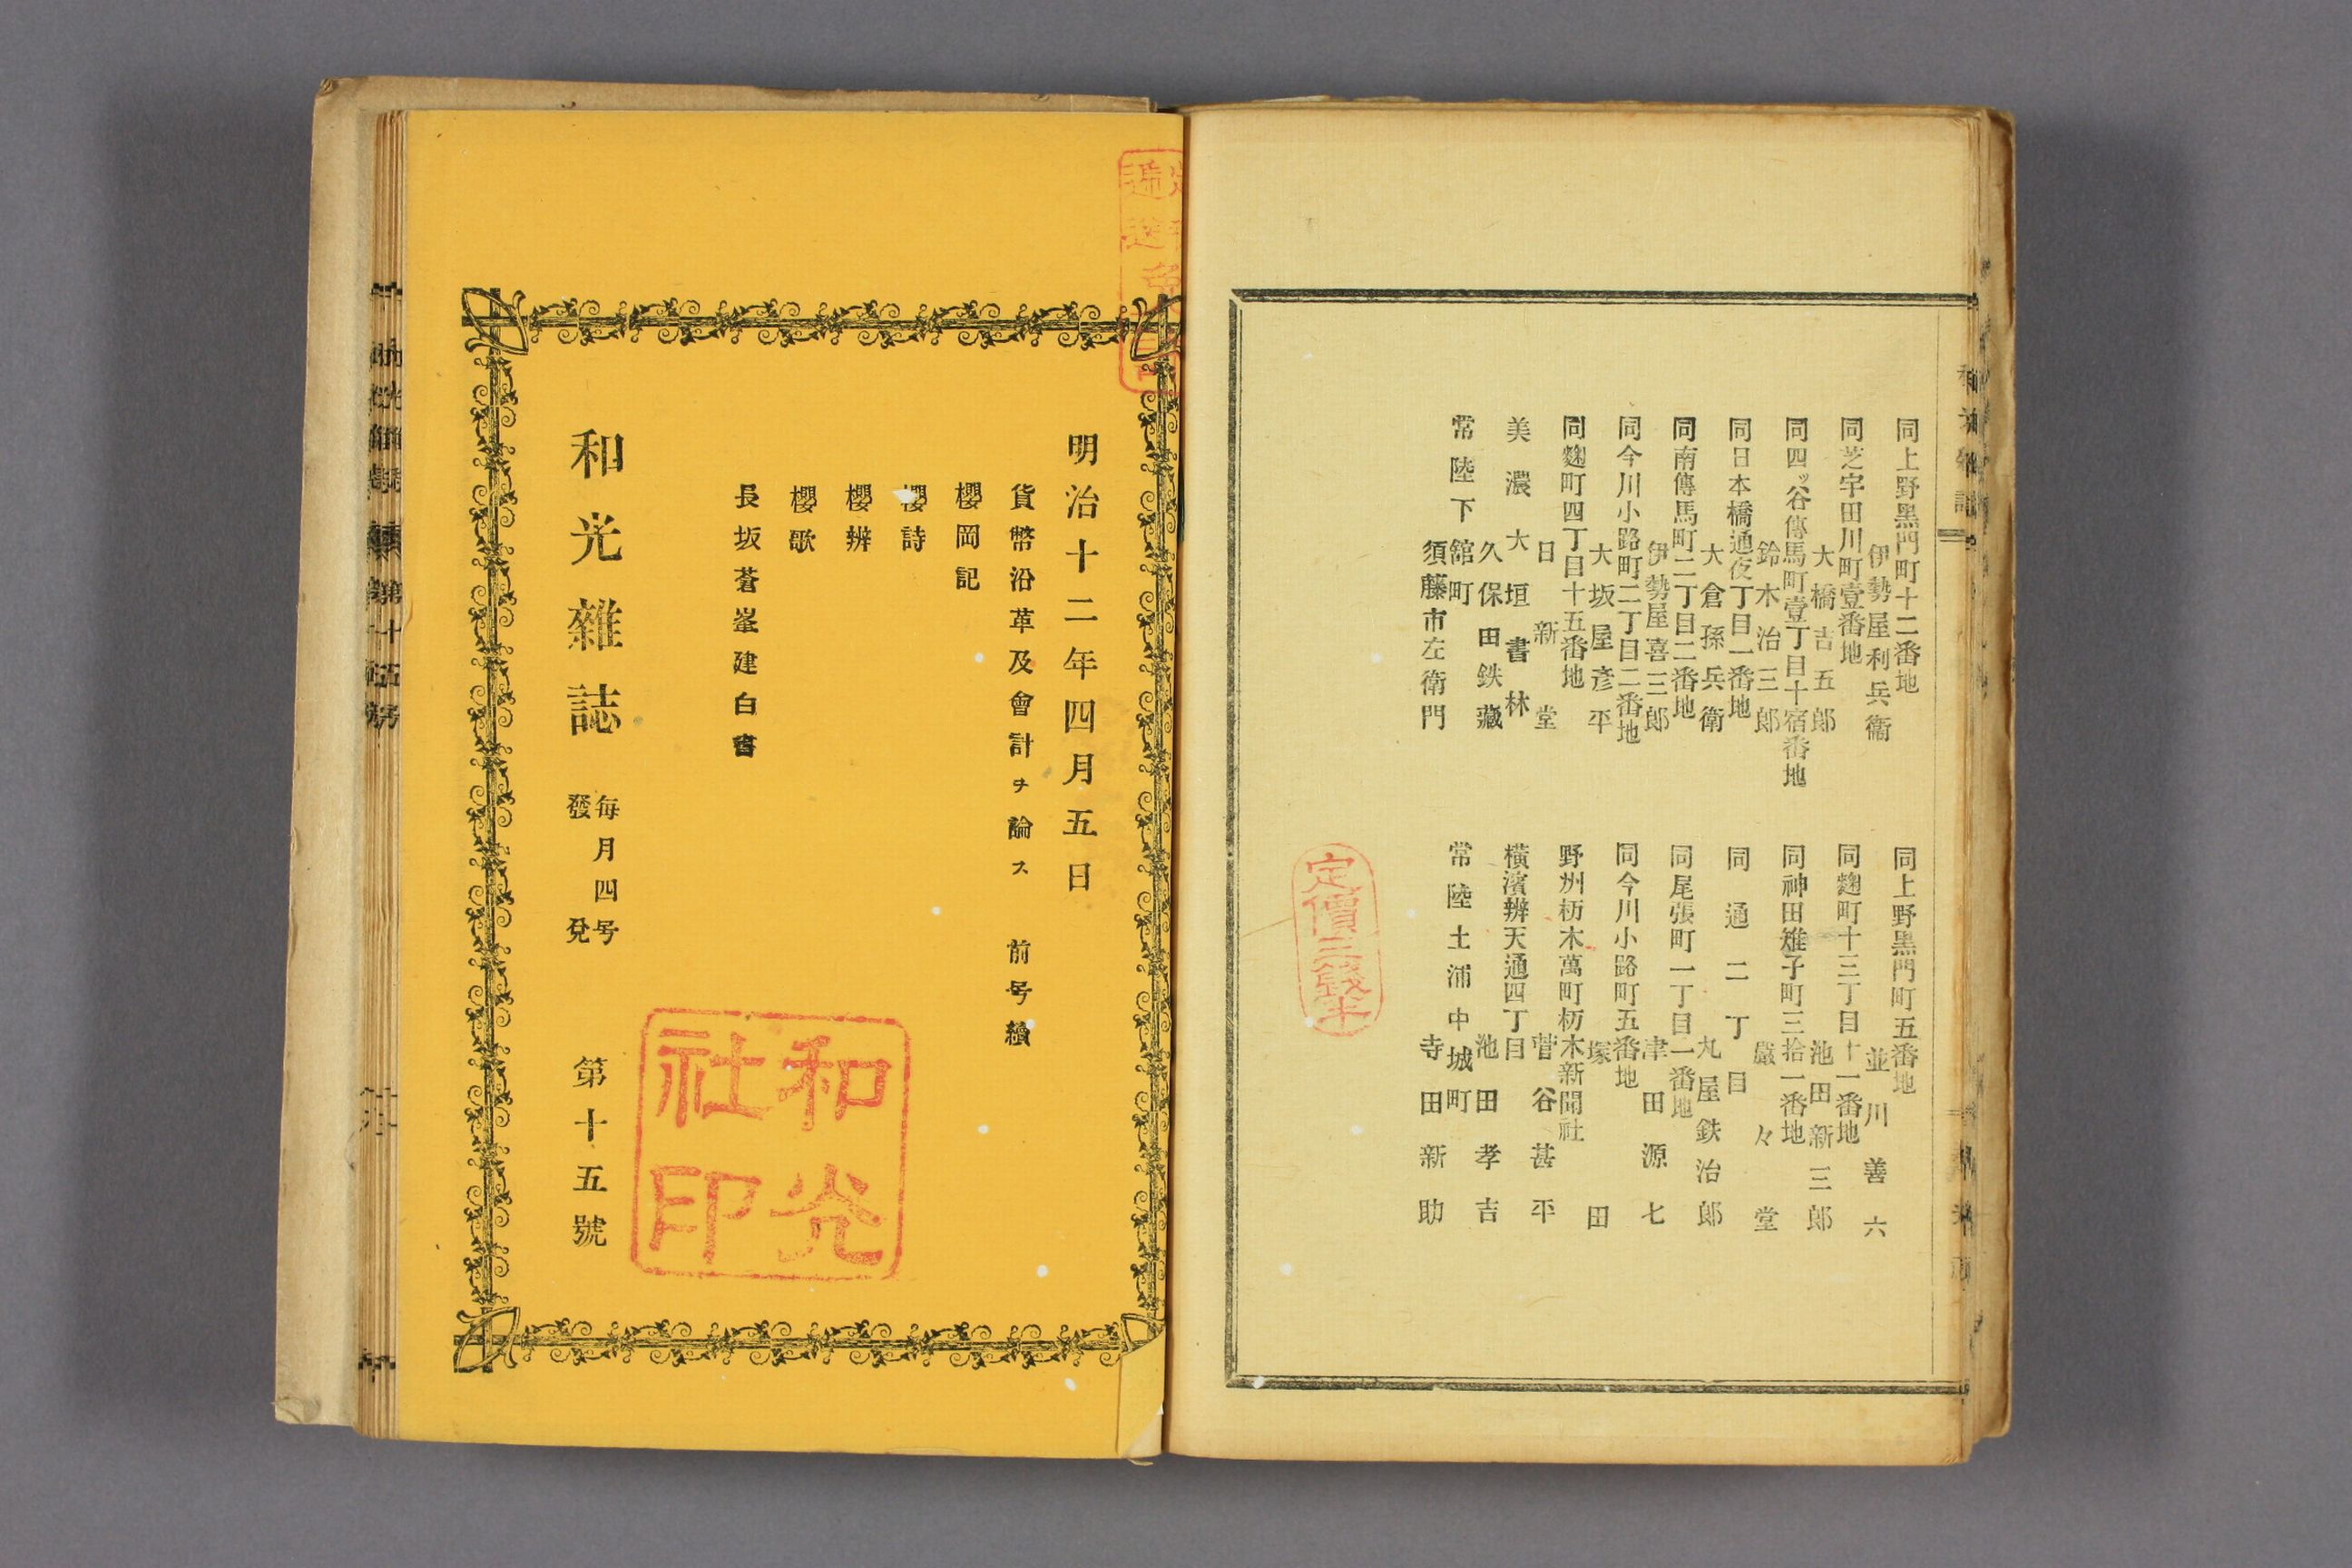 同上野黑門町十二番地
伊勢屋利兵衞
同芝宇田川町壹番地
大橋吉五郎
同四ッ谷傳馬町壹丁目十宿番地
鈴木治三郎
同日本橋通壱丁目一番地
大倉孫兵衛
同南傳馬町二丁目二番地
伊勢屋喜三郎
同今川小路町二丁目二番地
大坂屋彦平
同麹町四丁目十五番地
日新堂
美濃大垣書林
久保田鉄藏
常陸下舘町
須藤市左衛門
同上野黑門町五番地
並川善六
同麹町十三丁目十一番地
池田新三郎
同神田雉子町三拾一番地
嚴々堂
同通二丁目
丸屋鉄治郎
同尾張町一丁目一番地
津田源七
同今川小路町五番地
塚田
野州栃木萬町栃木新聞社
菅谷甚平
橫濱辨天通四丁目
池田孝吉
常陸土浦中城町
寺田新助
定價三錢半
明治十二年四月五日
貨幣沿革及會計ヲ論ス 前号續
櫻岡記
櫻詩
櫻辨
櫻歌
長坂蒼峯建白書
和光雜誌 每月四号發兌 第十五號
和光社印